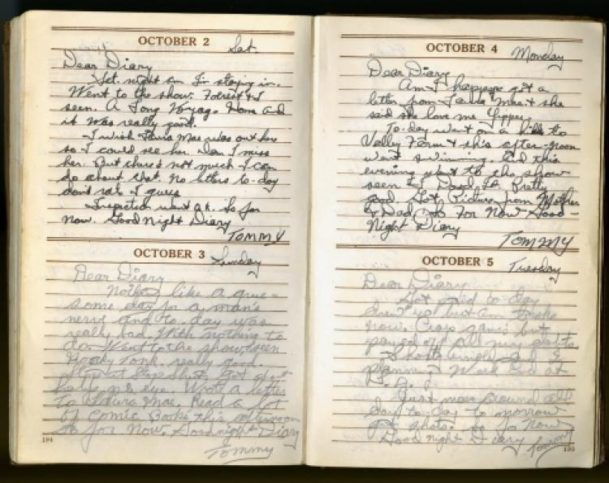 OCTOBER 2 Sat.
Dear Diary
Sat. night and I'm staying in.
Went to the show. Forrest & I
seen. A Long Voyage Home and
it was really good.
I wish Laura Mae was out here
so I could see her. I miss
her. But there's not much I can
do about that. No letters to-day
don't rate I guess
Inspection went ok. So for
now. Good Night Diary
TOMMY
OCTOBER 3 Sunday
Dear Diary
like a
some day for a man's
nerves and to-day was
really bad. With nothing to
do. Went to the show, seen
really good.
Wrote a letter
to Laura Mae. Read a lot
of comic Books this afternoon
So for Now. Goodnight Diary
Tommy
194
OCTOBER 4 Monday
Dear Diary
Am I happy. got a
letter from Laura Mae & she
said she love me. Yippey.
To-day went on a to
Valley Form & this after-noon
went swimming. And this
evening went to the show
seen Pretty
good. Got Picture from Mother
& Dad. So For Now Good-
Night Diary
TOMMY
OCTOBER 5 Tuesday
Dear Diary
Got paid to-day
but am broke
now. Crap game but
payed off all my debts
&
at
Just mess around all
day to-day. to-morrow
shots. So for Now
Good night Diary
Tommy
195